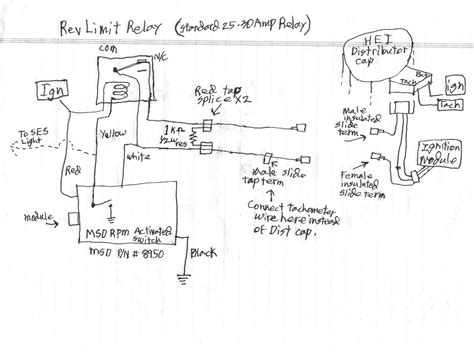 Rev Limit Relay (standard 25-30 Amp Relay)
com
N/C
Ign
Red tap
splice x2
1K
1/2 w res
To SES
Light
Yellow
white
Red
module
MSD RPM Activated
switch
MSD P/N # 8950
Black
male slide
tap term
Connect tachometer
wire here instead
of Dist cap.
HEI
Distributor
cap
Bat
Tach
ign
Tach
male
insulated
slide
term
Female
insulated
slide term
Ignition
Module